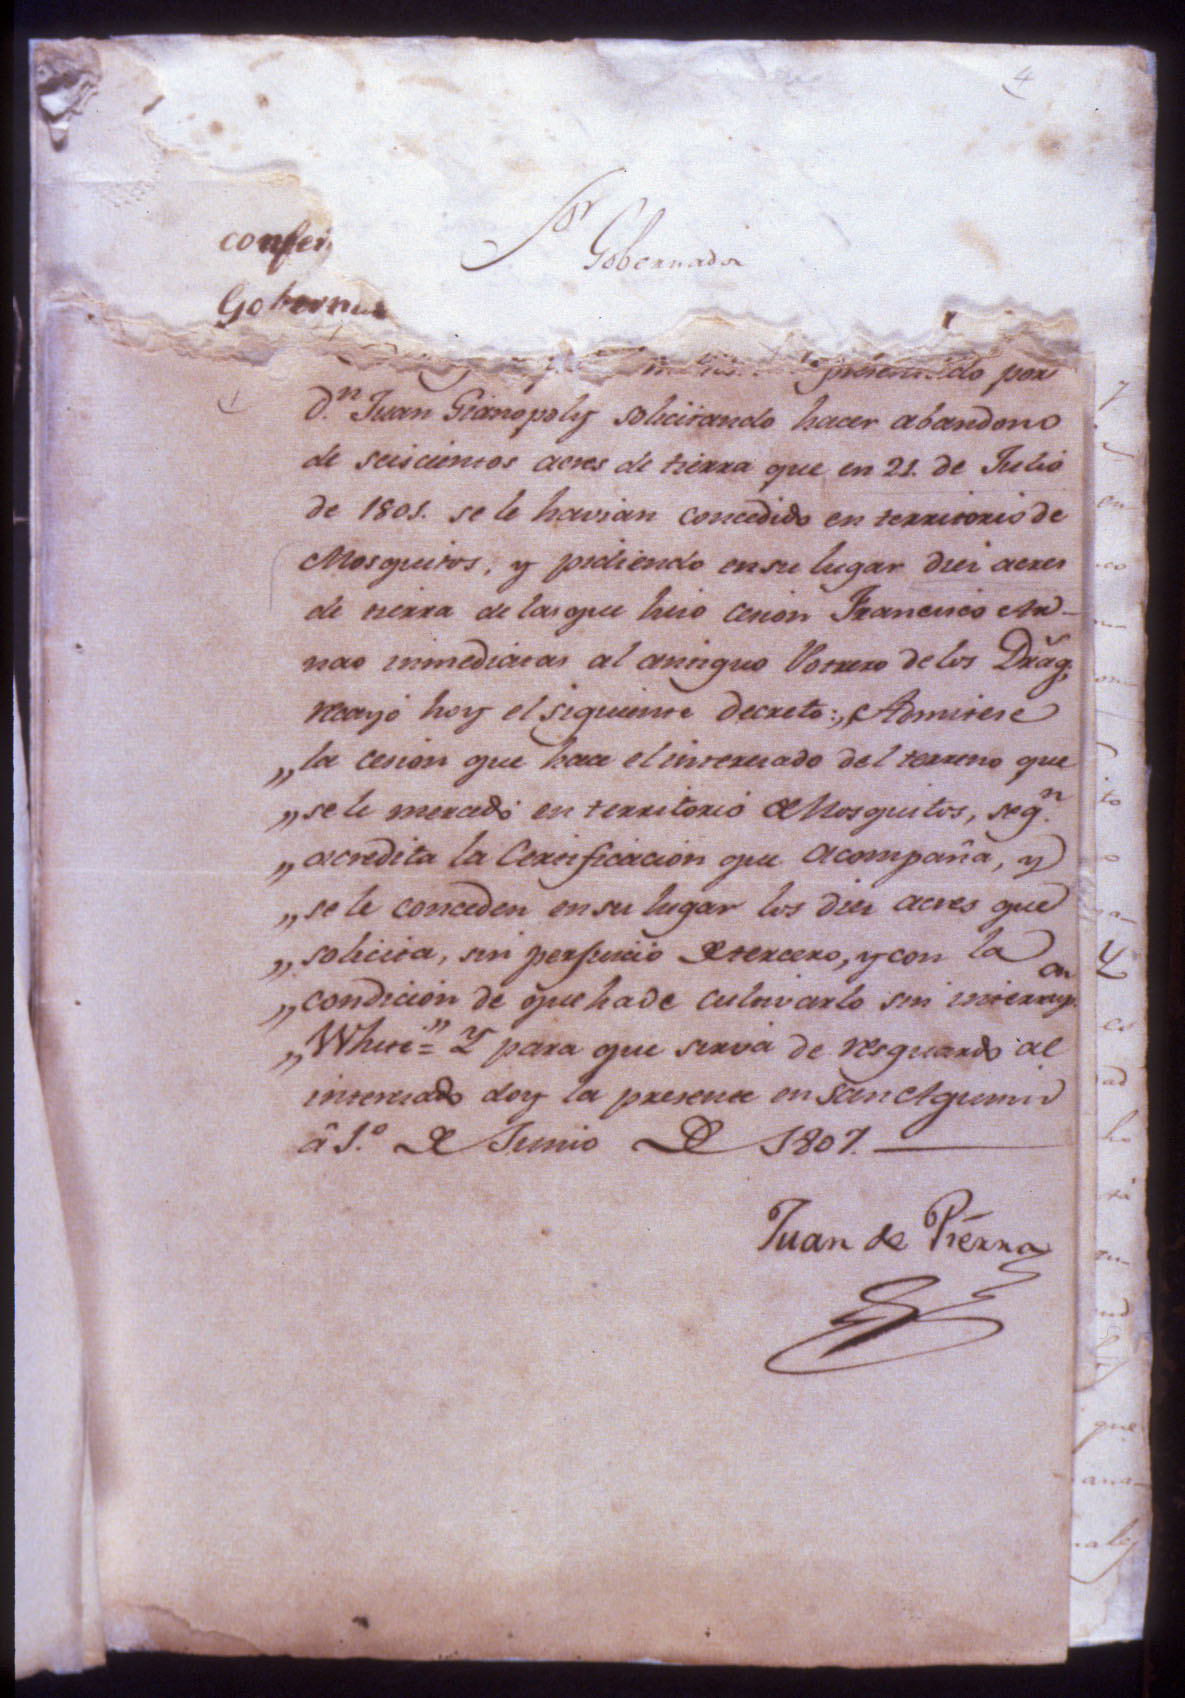 4
Sor
confer
Gobernador
Goberna
presentado por
D.n Juan Gianopoly solicitando hacer abandono
de seiscientos acres de tierra que en 21. de Julio
de 1801. se le havian concedido en territorio de
Mosquitos, y pidiendo en su lugar diez acres
de tierra de las que hizo cesion Francisco Ar-
nao inmediatas al antiguo Potrero de los Drag.s
recayó hoy el siguiente decreto:,, Admitese
,, la cesion que hace el interesado del terreno que
,, se le mercedó en territorio de Mosquitos, seg.n
,, acredita la Certificacion que acompaña, y
,, se le conceden en su lugar los diez acres que
,, solicita, sin perjuicio de tercero, y con la
,, condicion de que ha de cultivarlo sin interrup.on
,, White=" Y para que sirva de resguardo al
interesado doy la presente en San Agustin
â 1.o de Junio de 1807.
Juan de Pierra